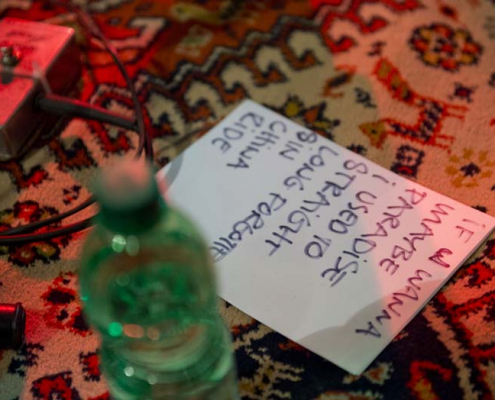 IF U WANNA
MAYBE
PARADISE
i USED TO
STRAIGHT
LONG
SIN
CHINA
RIDE